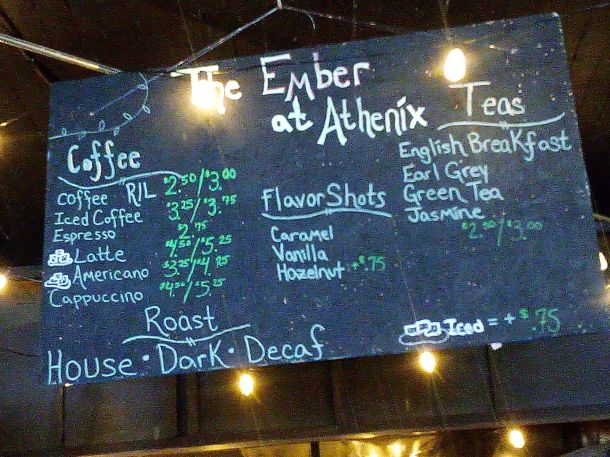 The Ember
at Athenix
Coffee
Coffee R/L $2.50/$3.00
Iced Coffee $3.25/$3.75
Espresso $2.75
Latte $4.50/$5.25
Americano
Cappuccino $4.50/$5.25
Flavor Shots
Caramel
Vanilla
Hazelnut +$.75
Teas
English Breakfast
Earl Grey
Green Tea
Jasmine
$2.50/$3.00
Roast
House • Dark • Decaf
Iced = + $.75